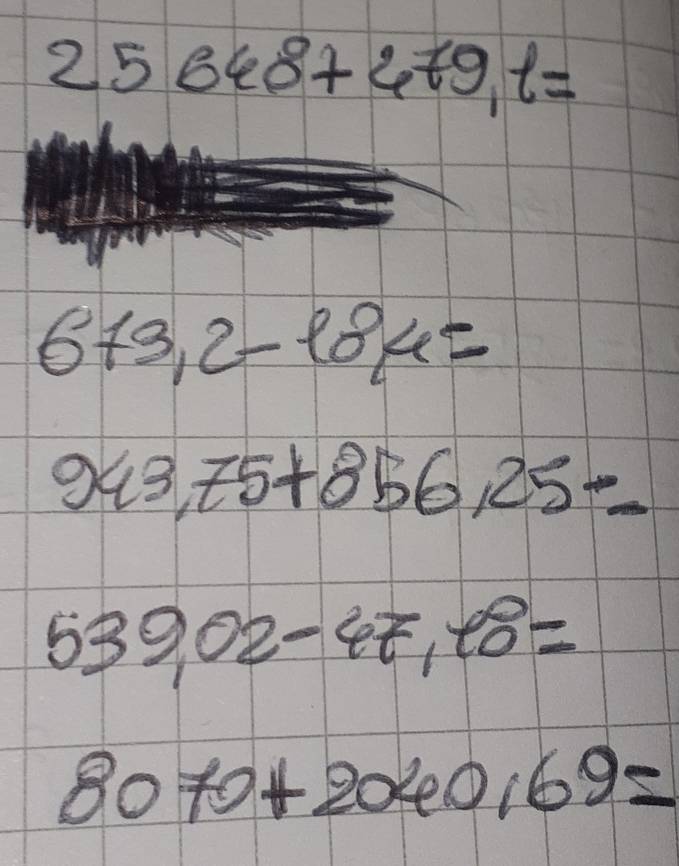 25 648+479,1=
673,2-18,4=
943,75+856,25=
539,02-47,18=
8070+2040,69=